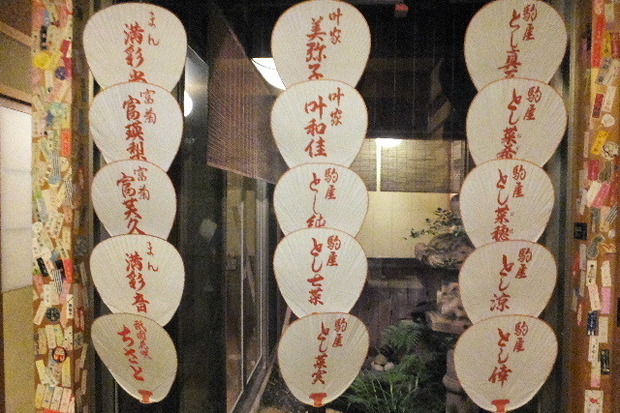 まん
満彩
富菊
富瑛梨
富菊
富美久
まん
満彩吾
ちさと
叶家
美弥子
叶家
叶和佳
駒屋
とし純
駒屋
とし七菜
駒屋
とし菜実
駒屋
とし真
駒屋
とし菜希
駒屋
とし菜穂
駒屋
とし涼
駒屋
とし倖